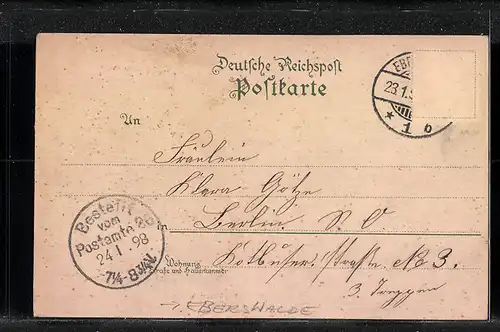 Deutsche Reichspost
Postkarte
EBE
23.1.
* 1 b
An
Fräulein
Klara Götze
in Berlin. S. O
Wohnung
(Straße und Hausnummer)
Kottbuser-Straße No 3.
3. Treppen
Bestellt
vom
Postamte
24 1 98
7¼-8¾V.
→. EBERSWALDE